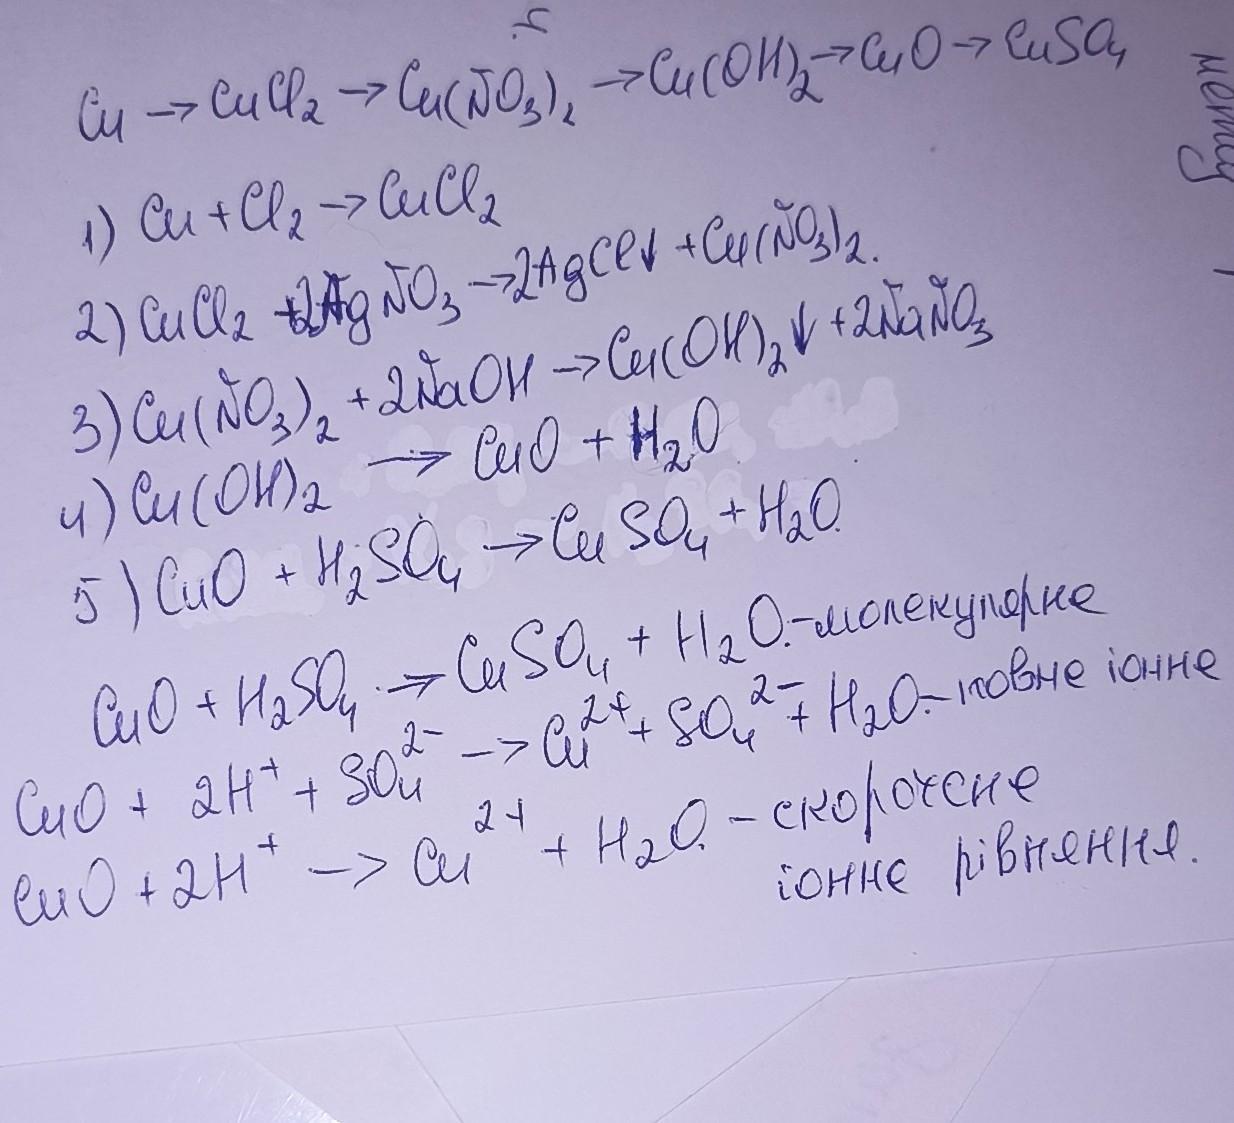 Cu → CuCl₂ → Cu(NO₃)₂ → Cu(OH)₂ → CuO → CuSO₄
1) Cu + Cl₂ → CuCl₂
2) CuCl₂ + 2AgNO₃ → 2AgCl↓ + Cu(NO₃)₂.
3) Cu(NO₃)₂ + 2NaOH → Cu(OH)₂↓ + 2NaNO₃
4) Cu(OH)₂ → CuO + H₂O
5) CuO + H₂SO₄ → CuSO₄ + H₂O
CuO + H₂SO₄ → CuSO₄ + H₂O - молекулярне
CuO + 2H⁺ + SO₄²⁻ → Cu²⁺ + SO₄²⁻ + H₂O - повне іонне
CuO + 2H⁺ → Cu²⁺ + H₂O - скорочене
іонне рівняння.